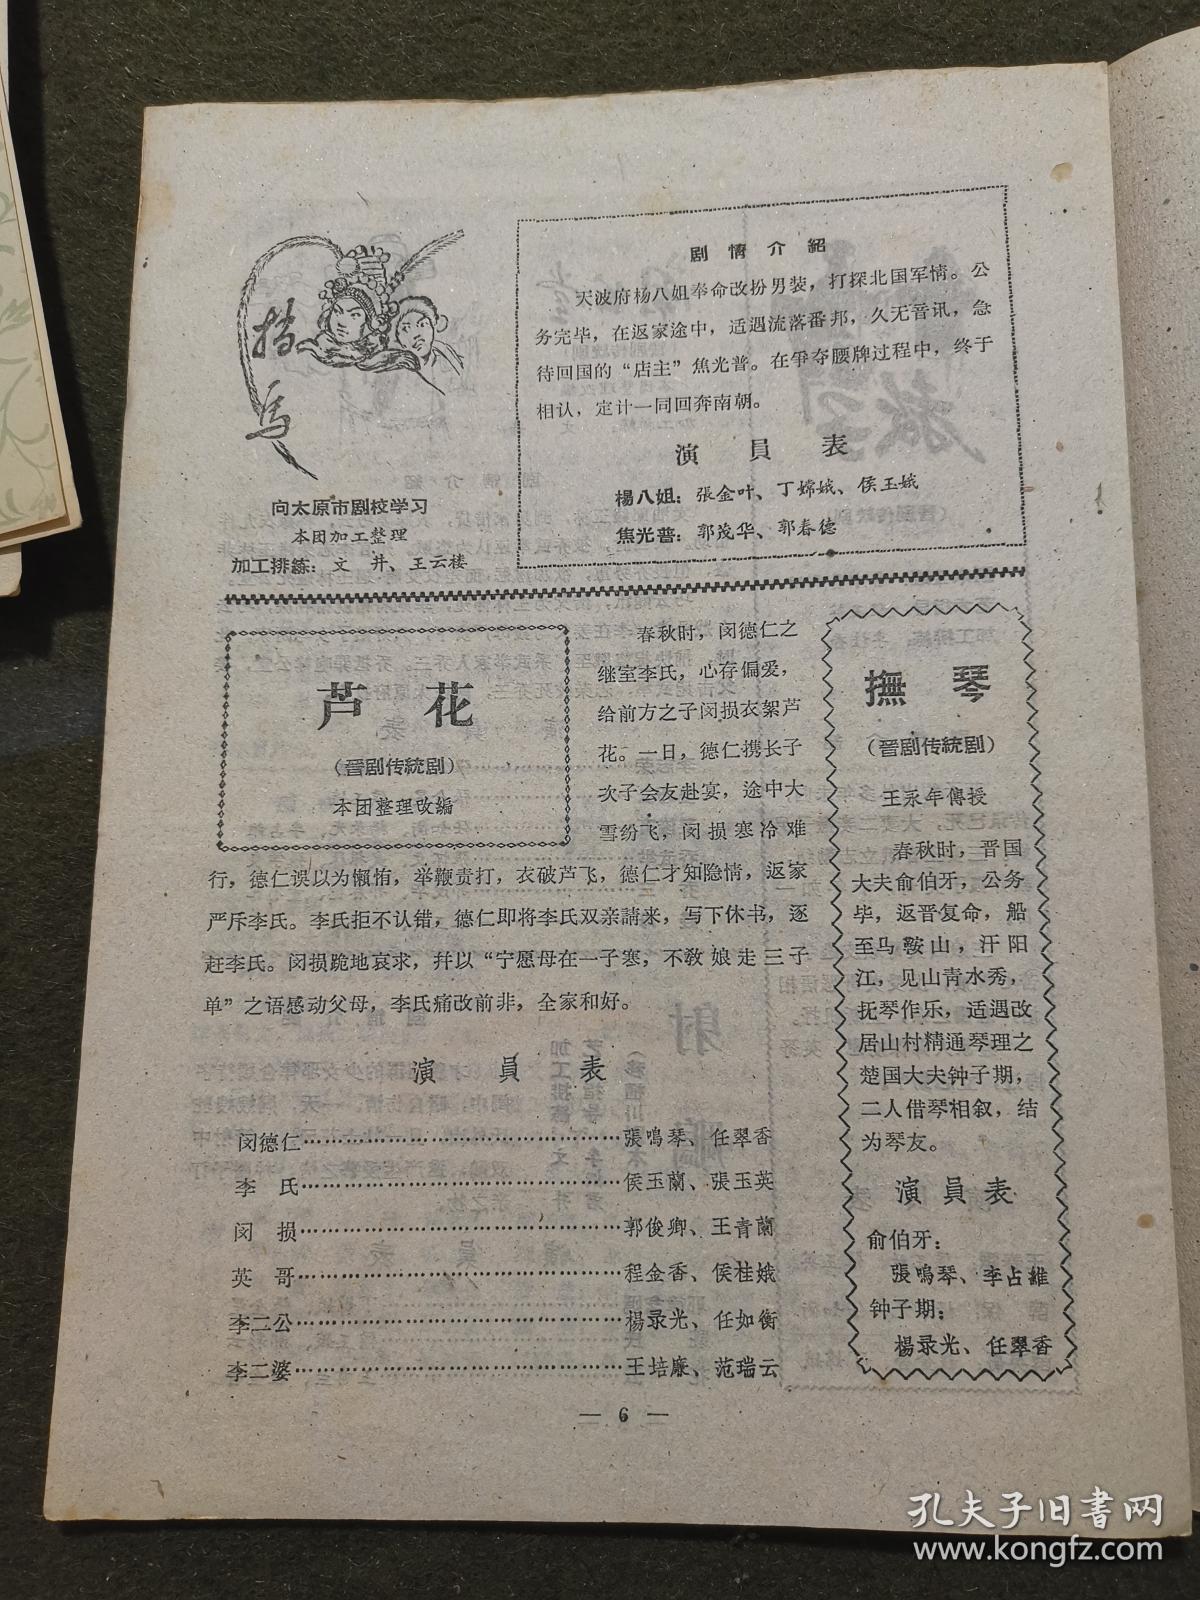 挡马
向太原市剧校学习
本团加工整理
加工排練：文　井、王云楼
剧情介紹
天波府杨八姐奉命改扮男装，打探北国军情。公
务完毕，在返家途中，适遇流落番邦，久无音讯，急
待回国的“店主”焦光普。在爭夺腰牌过程中，终于
相认，定计一同回奔南朝。
演員表
楊八姐：張金叶、丁嫦娥、侯玉娥
焦光普：郭茂华、郭春德
芦花
（晋剧传統剧）
本团整理改編
春秋时，闵德仁之
继室李氏，心存偏爱，
给前方之子闵损衣絮芦
花。一日，德仁携长子
次子会友赴宴，途中大
雪纷飞，闵损寒冷难
行，德仁误以为懒惰，举鞭责打，衣破芦飞，德仁才知隐情，返家
严斥李氏。李氏拒不认错，德仁即将李氏双亲請来，写下休书，逐
赶李氏。闵损跪地哀求，幷以“宁愿母在一子寒，不敎娘走三子
单”之语感动父母，李氏痛改前非，全家和好。
演員表
闵德仁……………………………………張鳴琴、任翠香
李　氏……………………………………侯玉蘭、張玉英
闵　损……………………………………郭俊卿、王青蘭
英　哥……………………………………程金香、侯桂娥
李二公……………………………………楊录光、任如衡
李二婆……………………………………王培廉、范瑞云
撫琴
（晉剧传統剧）
王永年傳授
春秋时，晋国
大夫俞伯牙，公务
毕，返晋复命，船
至马鞍山，汗阳
江，见山青水秀，
抚琴作乐，适遇改
居山村精通琴理之
楚国大夫钟子期，
二人借琴相叙，结
为琴友。
演員表
俞伯牙：
張鳴琴、李占維
钟子期：
楊录光、任翠香
— 6 —
孔夫子旧書网
www.kongfz.com